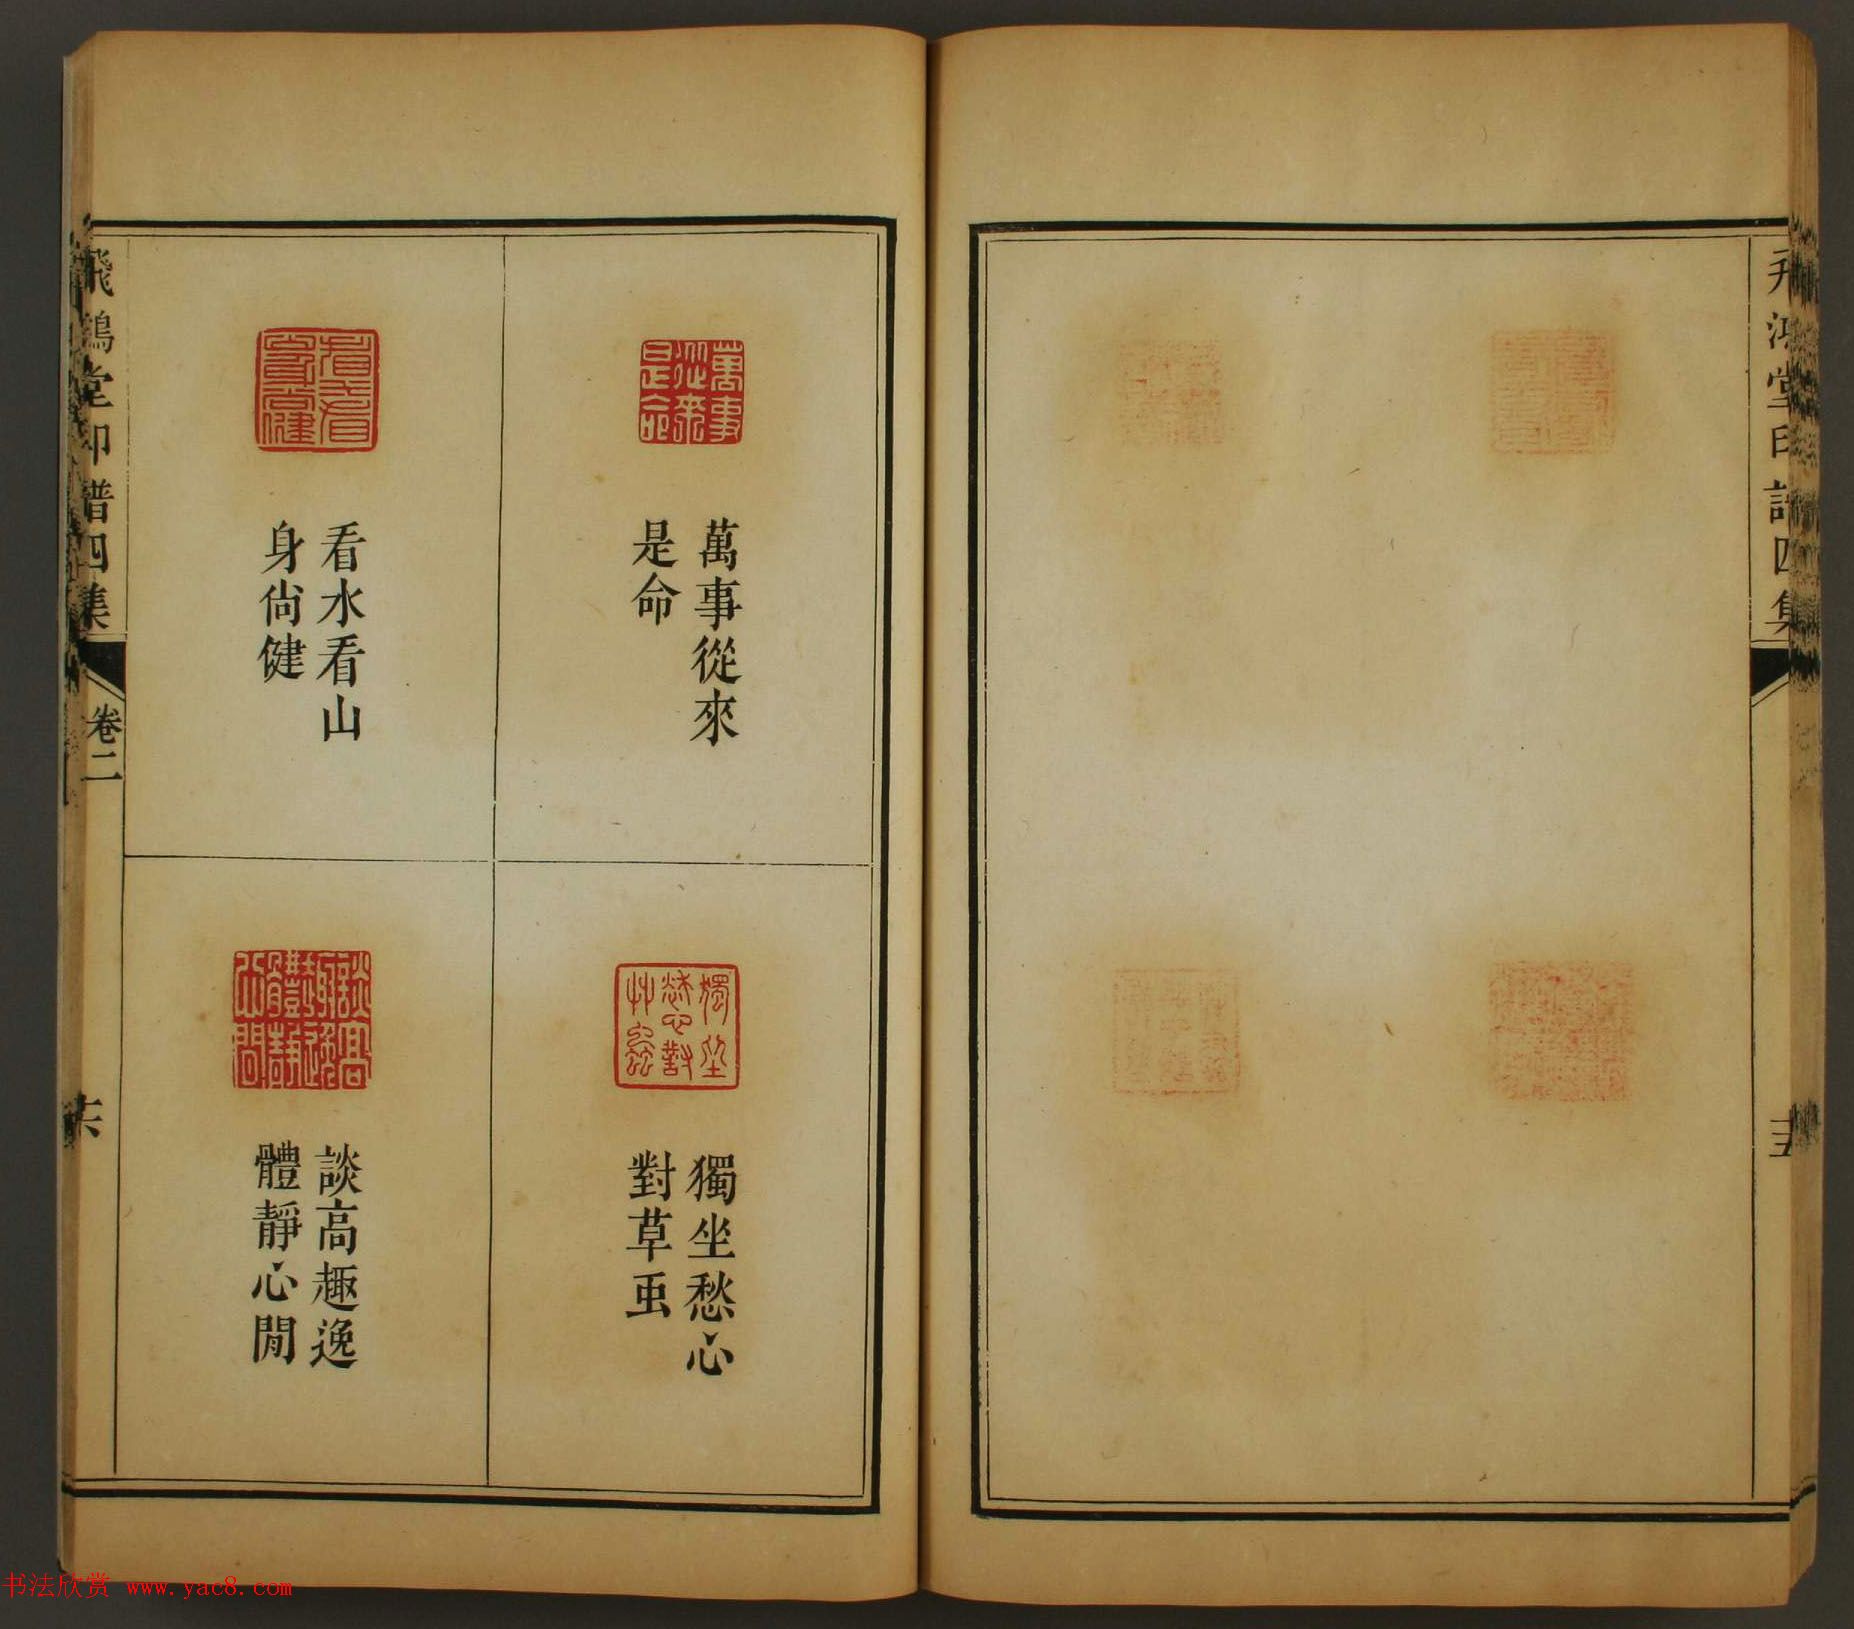 飛鴻堂印譜四集
十五
萬事從來
是命
獨坐愁心
對草虫
看水看山
身尙健
談高趣逸
體靜心閒
飛鴻堂印譜四集
卷二
十六
书法欣赏 www.yac8.com